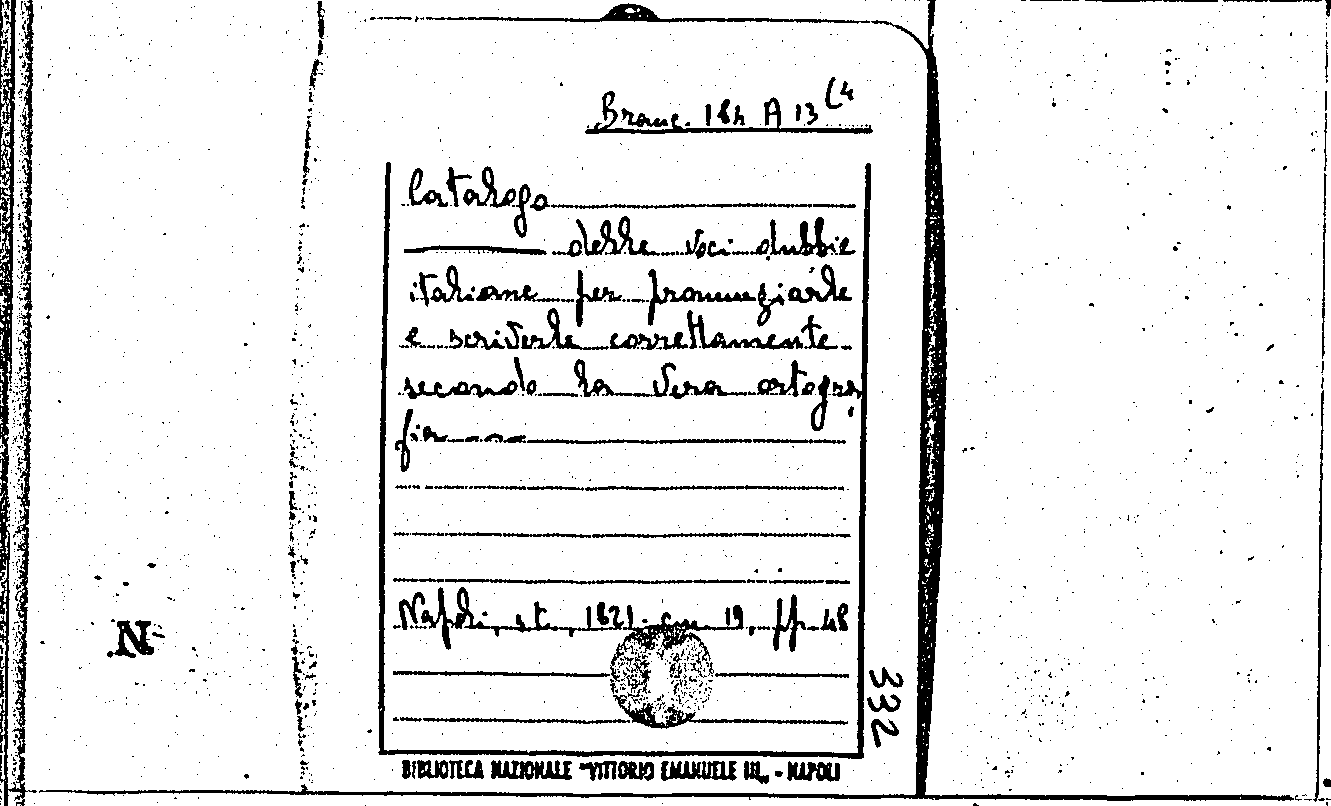 Branc. 18h A 13 (4
Catalogo
delle voci dubbie
italiane per pronunziarle
e scriverle correttamente
secondo la vera ortogra
fia ---
Napoli, s.t., 1821. cm. 19, pp. 48
332
N
BIBLIOTECA NAZIONALE "VITTORIO EMANUELE III" - NAPOLI